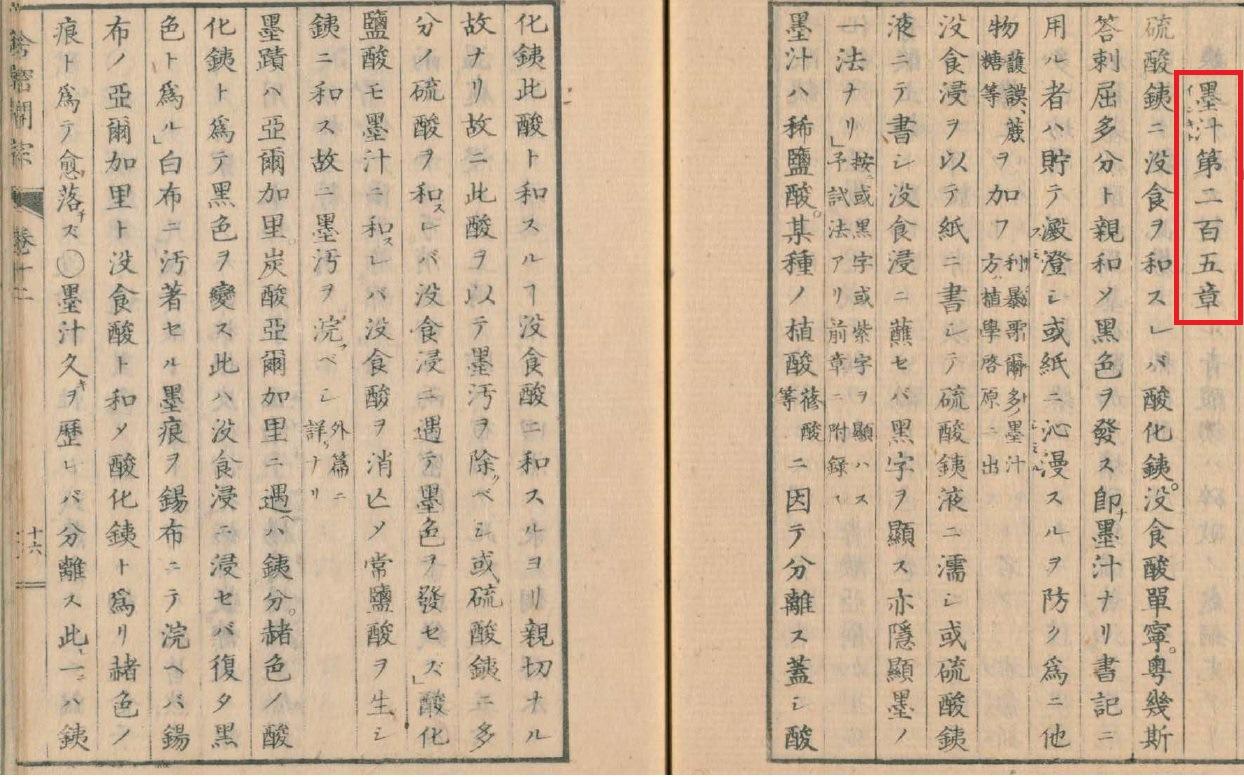 墨汁第二百五章
硫酸銕ニ没食ヲ和スレバ酸化銕。没食酸單寧。粤幾斯
答刺屈多分ト親和メ黒色ヲ發ス即墨汁ナリ書記ニ
用ル者ハ貯テ澱澄シ或紙ニ沁漫スルヲ防ク爲ニ他
物護謨、蔗糖等ヲ加フ利暴歌爾多墨汁方植學啓原ニ出
没食浸ヲ以テ紙ニ書シテ硫酸銕液ニ濡シ或硫酸銕
液ニテ書シ没食浸ニ蘸セバ黒字ヲ顯ス亦隱顯墨ノ
一法ナリ」按ニ或黒字或紫字ヲ顯ハス予試法アリ前章ニ附録ス
墨汁ハ稀鹽酸。某種ノ植酸蓚酸等ニ因テ分離ス蓋シ酸
化銕此酸ト和スルヿ没食酸ニ和スルヨリ親切ナル
故ナリ故ニ此酸ヲ以テ墨汚ヲ除ベシ或硫酸銕ニ多
分ノ硫酸ヲ和スレバ没食浸ニ遇テ墨色ヲ發セズ」酸化
鹽酸モ墨汁ニ和スレバ没食酸ヲ消亡メ常鹽酸ヲ生シ
銕ニ和ス故ニ墨汚ヲ浣ベシ外篇ニ詳ナリ
墨蹟ハ亞爾加里。炭酸亞爾加里ニ遇ヘハ銕分。赭色ノ酸
化銕ト爲テ黒色ヲ變ス此ハ没食浸ニ浸セバ復タ黒
色ト爲ル」白布ニ汚著セル墨痕ヲ錫布ニテ浣ヘバ錫
布ノ亞爾加里ト没食酸ト和メ酸化銕ト爲リ赭色ノ
痕ト爲テ愈落チズ〇墨汁久キヲ歴レバ分離ス此一ハ銕
舎密開宗 巻十二 十六